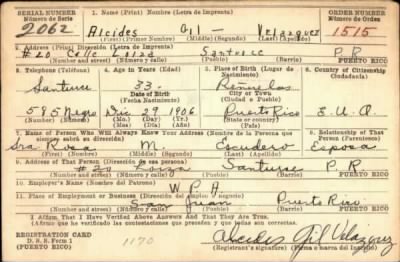 SERIAL NUMBER 1. Name (Print) Nombre (Letra de Imprenta) ORDER NUMBER
Número de Serie Número de Orden
2062 Alcides Gil Velazquez 1515
(First) (Primer) (Nombre) (Middle) (Segundo) (Last) (Apellido)
2. Address (Print) Dirección (Letra de Imprenta)
#20 Calle Loiza Santurce P R
(Number and street) (Número y calle) (Town) (Pueblo) Barrio PUERTO RICO
3. Telephone (Teléfono) 4. Age in Years (Edad) 5. Place of Birth (Lugar de Nacimiento) 6. Country of Citizenship (Ciudadanía)
Santurce 33 Peñuelas
Date of Birth (Fecha Nacimiento) City or Town (Ciudad o Pueblo)
585 Negro Dic 29 1906 Puerto Rico E.U.A.
(Mo.) (Día) (Año) State or country (País)
7. Name of Person Who Will Always Know Your Address (Nombre de la Persona que siempre sabrá su dirección) 8. Relationship of That Person (Parentesco)
Sra Rosa M Escudero Esposa
(First) (Primer) (Nombre) (Middle) (Segundo) (Last) (Apellido)
9. Address of That Person (Dirección de esa persona)
#20 Loiza Santurce P. R.
(Number and street) (Número y calle) (Town) (Pueblo) Barrio PUERTO RICO
10. Employer's Name (Nombre del Patrono)
W P A
11. Place of Employment or Business (Dirección del empleo o negocio)
San Juan Puerto Rico
(Number and street) (Número y calle) (Town) (Pueblo) Barrio PUERTO RICO
I Affirm That I Have Verified Above Answers And That They Are True.
REGISTRATION CARD
D. S. S. Form 1 1170 Alcides Gil Velazquez
(PUERTO RICO) (Registrant's signature) (Firma o marca del Inscrito)